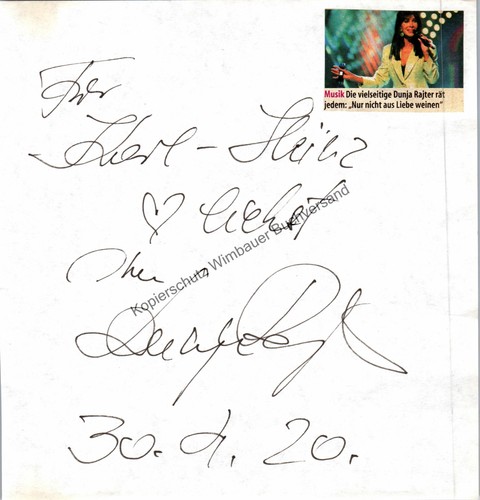 Musik Die vielseitige Dunja Rajter rät
jedem: „Nur nicht aus Liebe weinen“
Für
Karl-Heinz
♡ lichst
Ihre
Dunja Rajter
30. 4. 20.
Kopierschutz Wimbauer Buchversand